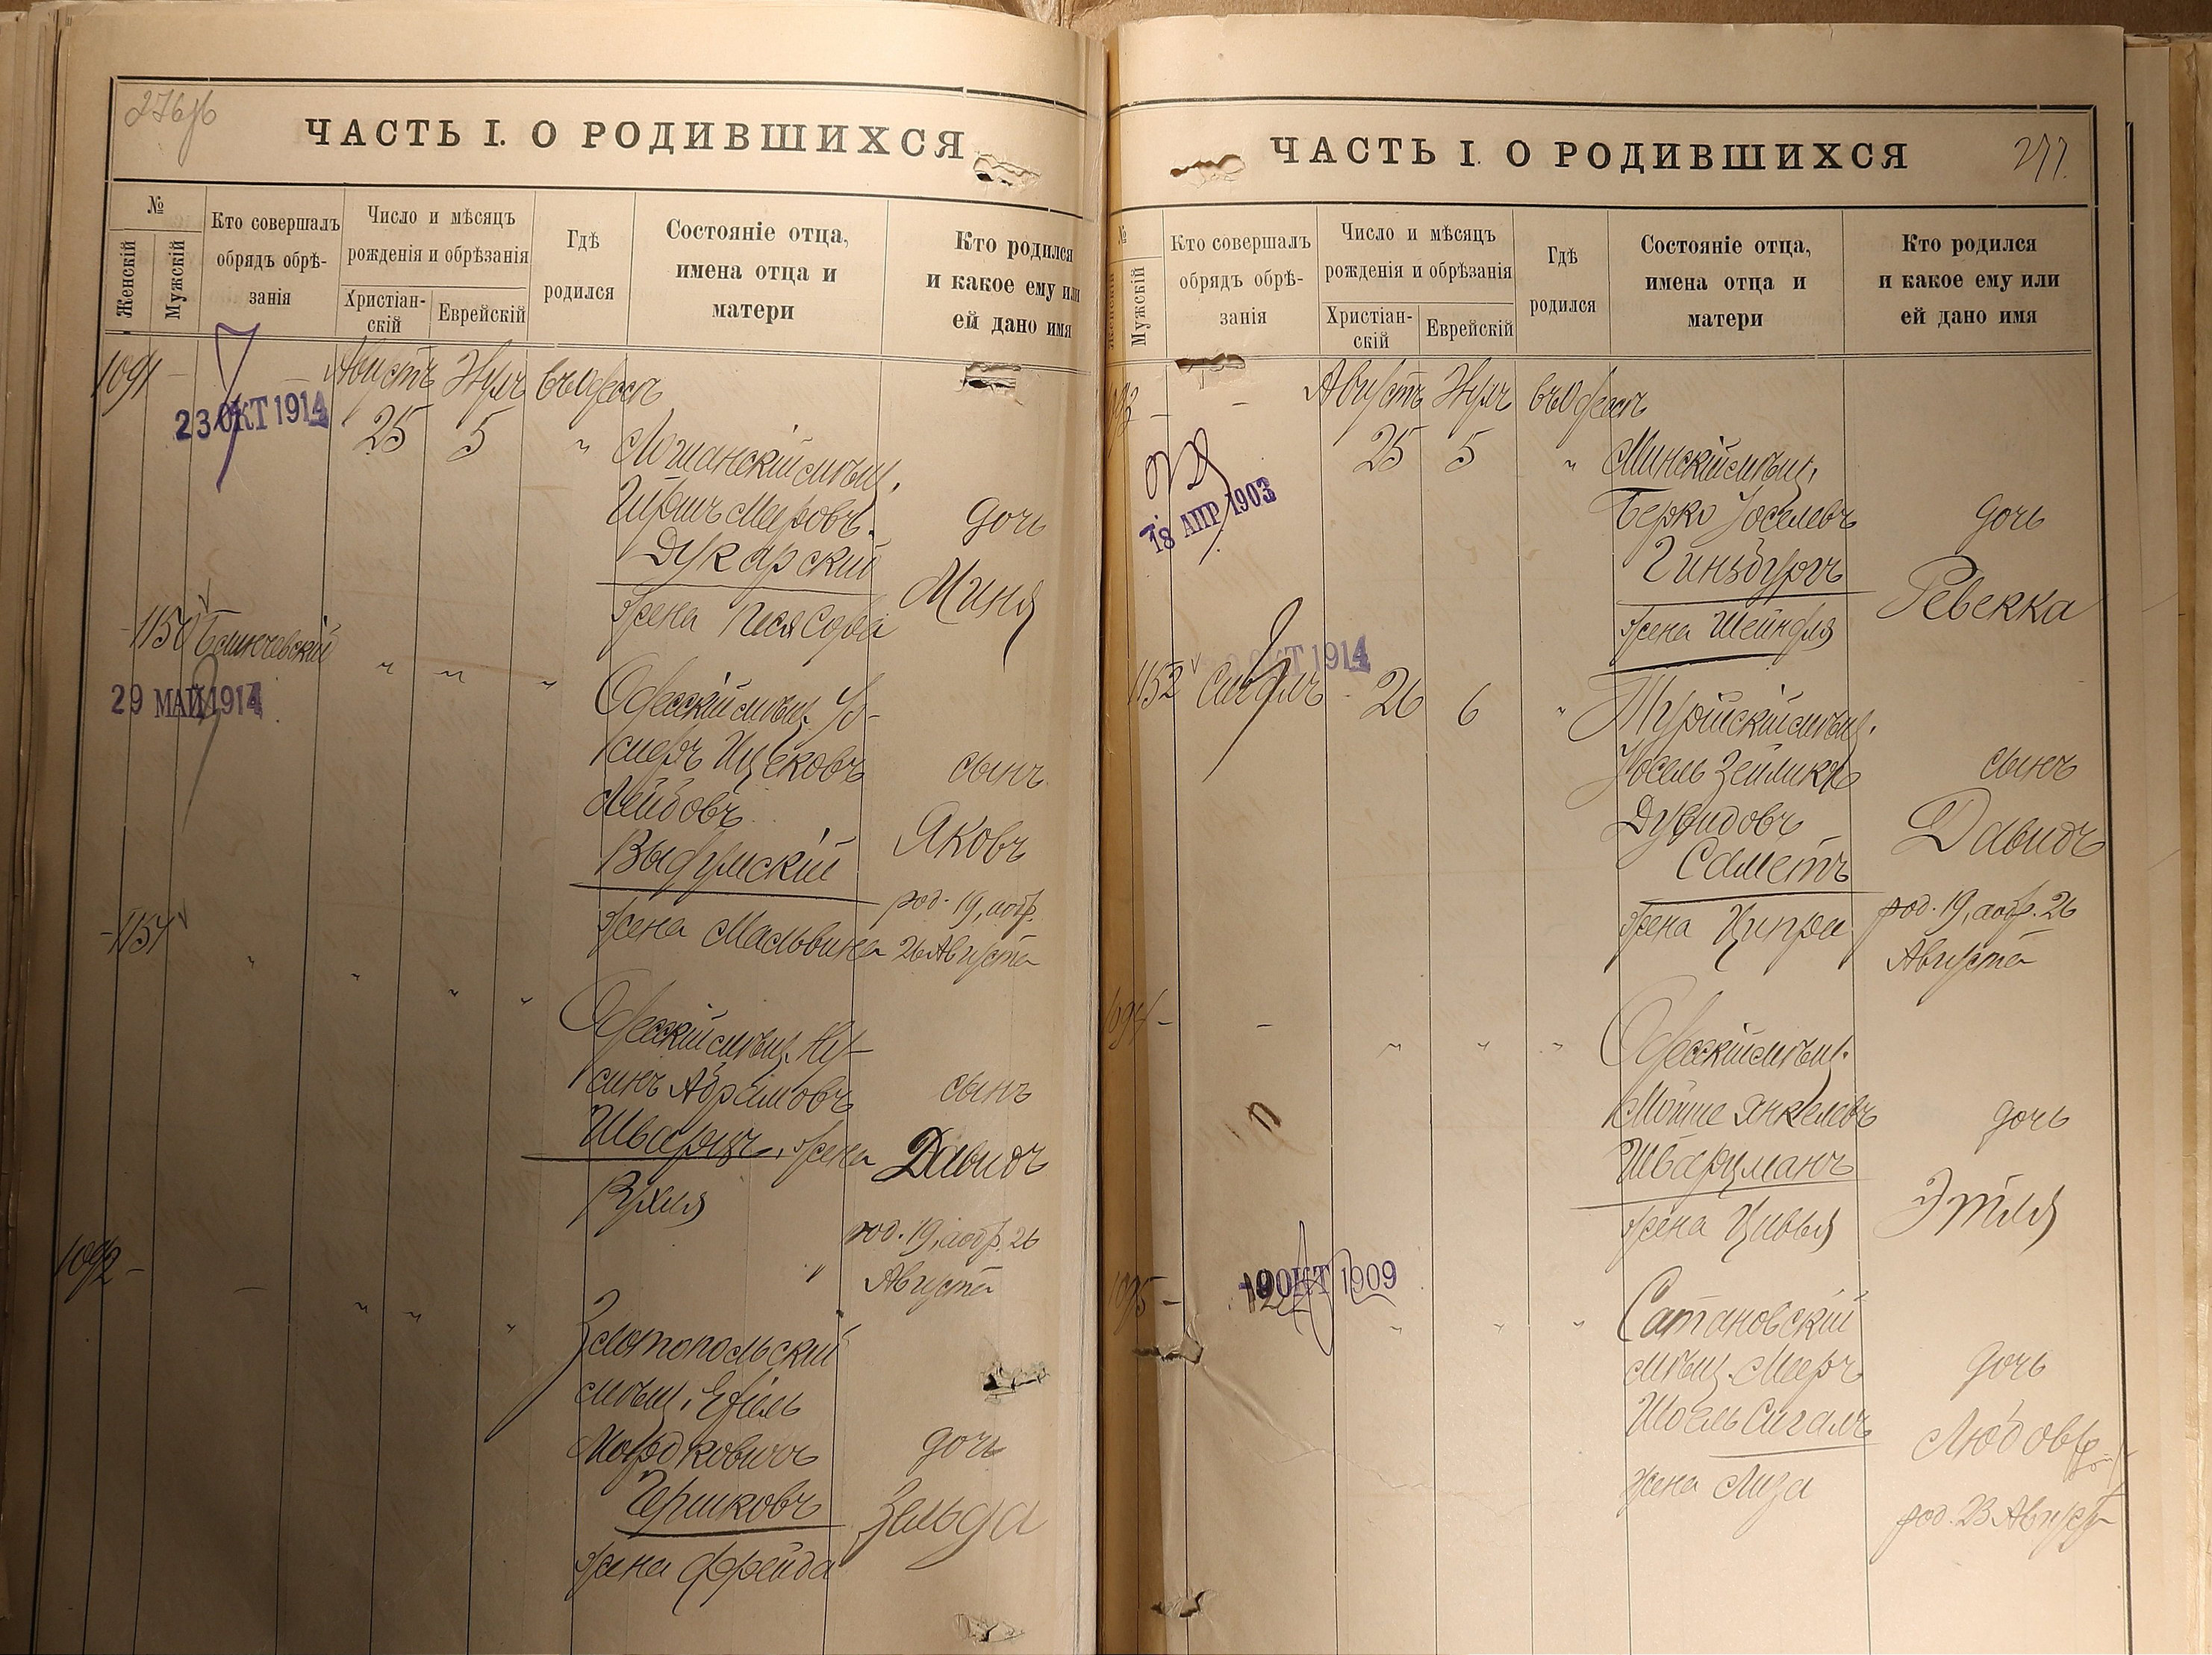 ЧАСТЬ I. О РОДИВШИХСЯ
№
Женскій
Мужскій
Кто совершалъ
обрядъ обрѣ-
занія
Число и мѣсяцъ
рожденія и обрѣзанія
Христіан-
скій
Еврейскій
Гдѣ
родился
Состояніе отца,
имена отца и
матери
Кто родился
и какое ему или
ей дано имя
1091 -
Августъ
въ Одессѣ
23 ОКТ 1914
25 5 "
мѣщ.
Гершъ Мееровъ
Дукарский
дочь
жена Песя Сора
Миня
1150
29 МАЙ 1914
" " "
Одесскій мѣщ.
Ицековъ
сынъ
Лейбовъ
Яковъ
жена Мальвина
род. 19, обр.
26 Августа
1151
" " " "
Одесскій мѣщ. Ну-
синъ Абрамовъ
сынъ
Шварцъ, жена
Давидъ
Рухля
род. 19, обр. 26
Августа
1092 -
- " " "
Златопольскій
мѣщ.
Мордковичъ
дочь
Гершковъ
Зельда
жена Фрейда
ЧАСТЬ I. О РОДИВШИХСЯ
277.
№
Женскій
Мужскій
Кто совершалъ
обрядъ обрѣ-
занія
Число и мѣсяцъ
рожденія и обрѣзанія
Христіан-
скій
Еврейскій
Гдѣ
родился
Состояніе отца,
имена отца и
матери
Кто родился
и какое ему или
ей дано имя
Августъ
въ Одессѣ
25 5 "
Минскій мѣщ.
18 АПР 1903
Берко Іоселевъ
дочь
Гинзбургъ
Ревекка
жена Шейндля
ОКТ 1914
1152
Сигалъ
26 6 "
мѣщ.
Іосель Зейликъ
сынъ
Дувидовъ
Давидъ
Саметъ
жена Ципра
род. 19, обр. 26
Августа
1094 -
- " " "
Одесскій мѣщ.
Мойше Янкелевъ
дочь
Шварцманъ
Этля
жена Цивья
1095 -
19 ОКТ 1909
" " "
Сатановскій
мѣщ. Мееръ
дочь
Шоель Сигалъ
Любовь
жена Лиза
род. 23 Августа